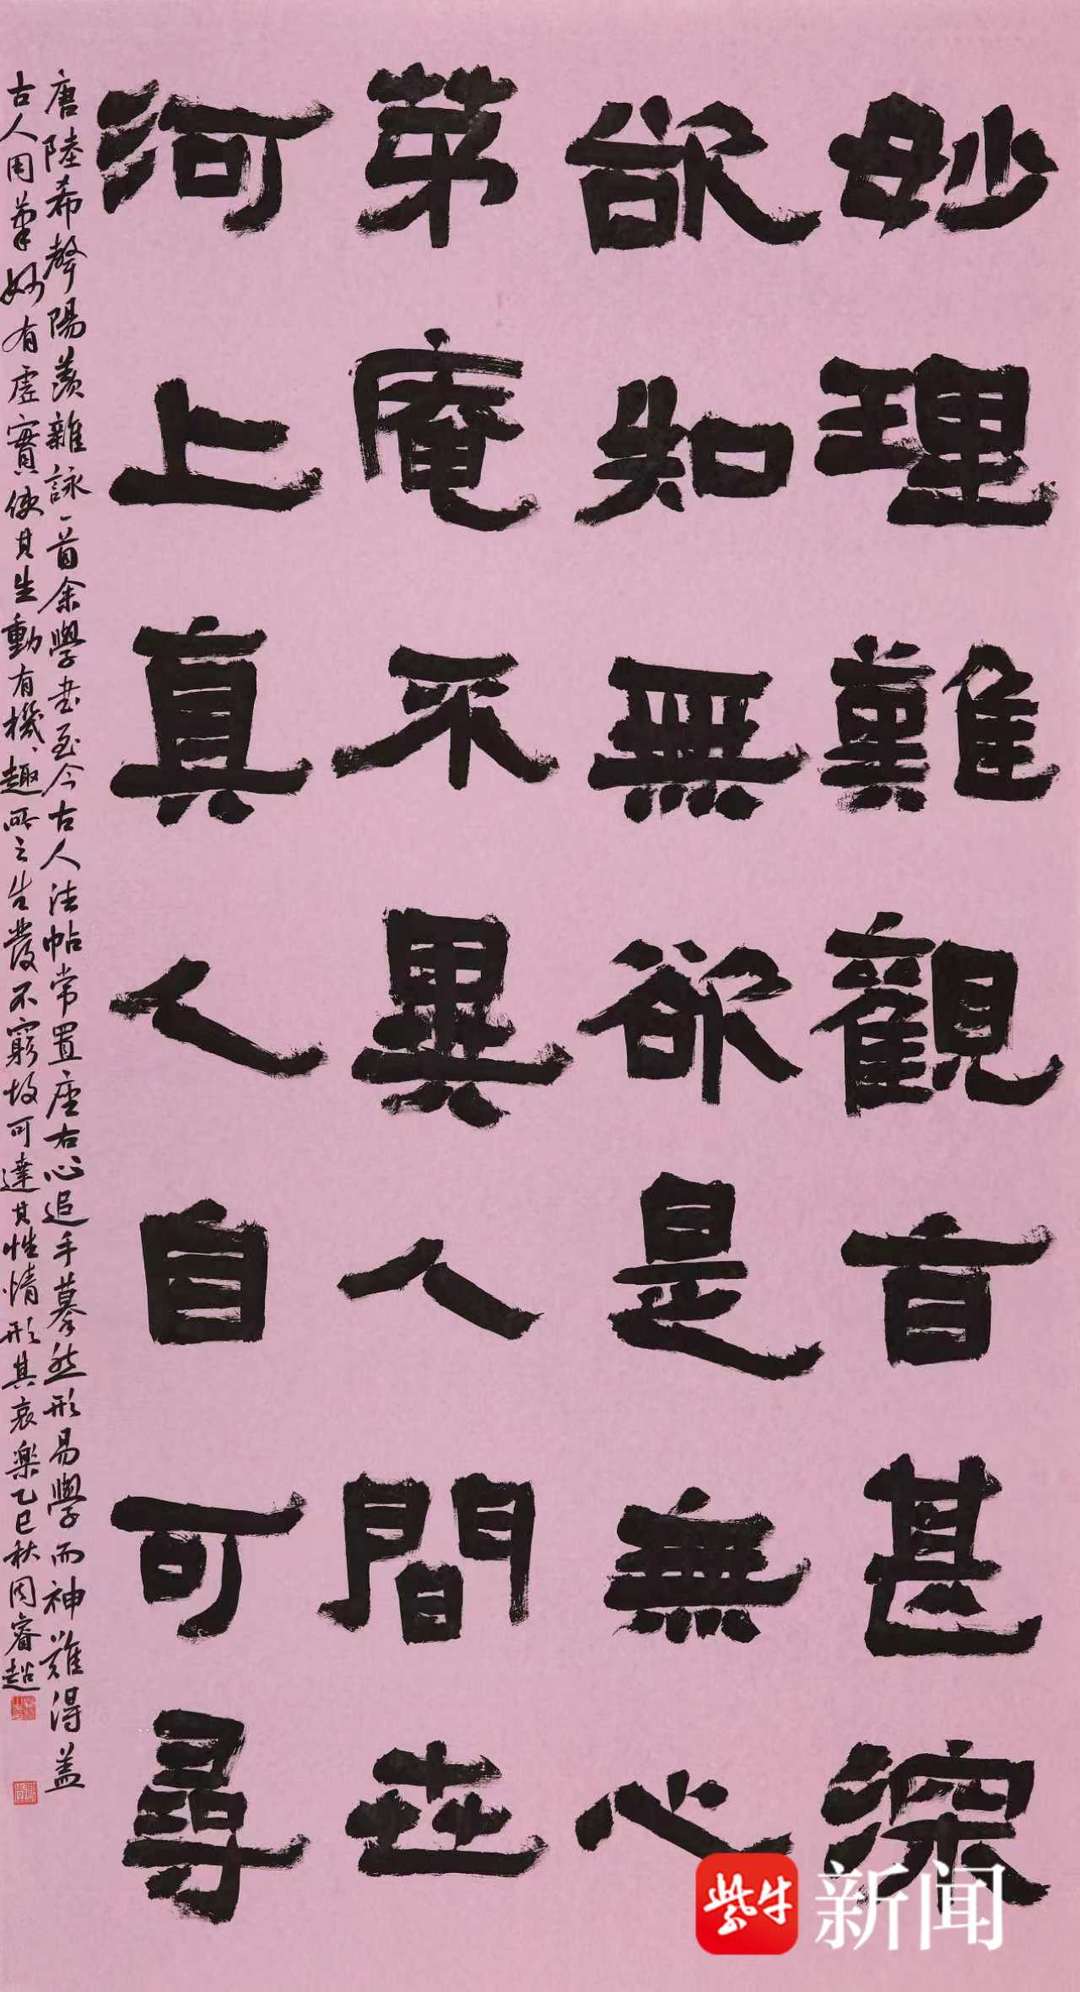 妙理難觀旨甚深
欲知無欲是無心
茅庵不異人間世
河上真人自可尋
唐陸希聲陽羨雜詠一首余學書至今古人法帖常置座右心追手摹然形易學而神難得蓋
古人用筆妙有虛實使其生動有機趣所之生發不窮故可達其性情形其哀樂乙巳秋周睿超
紫牛新闻